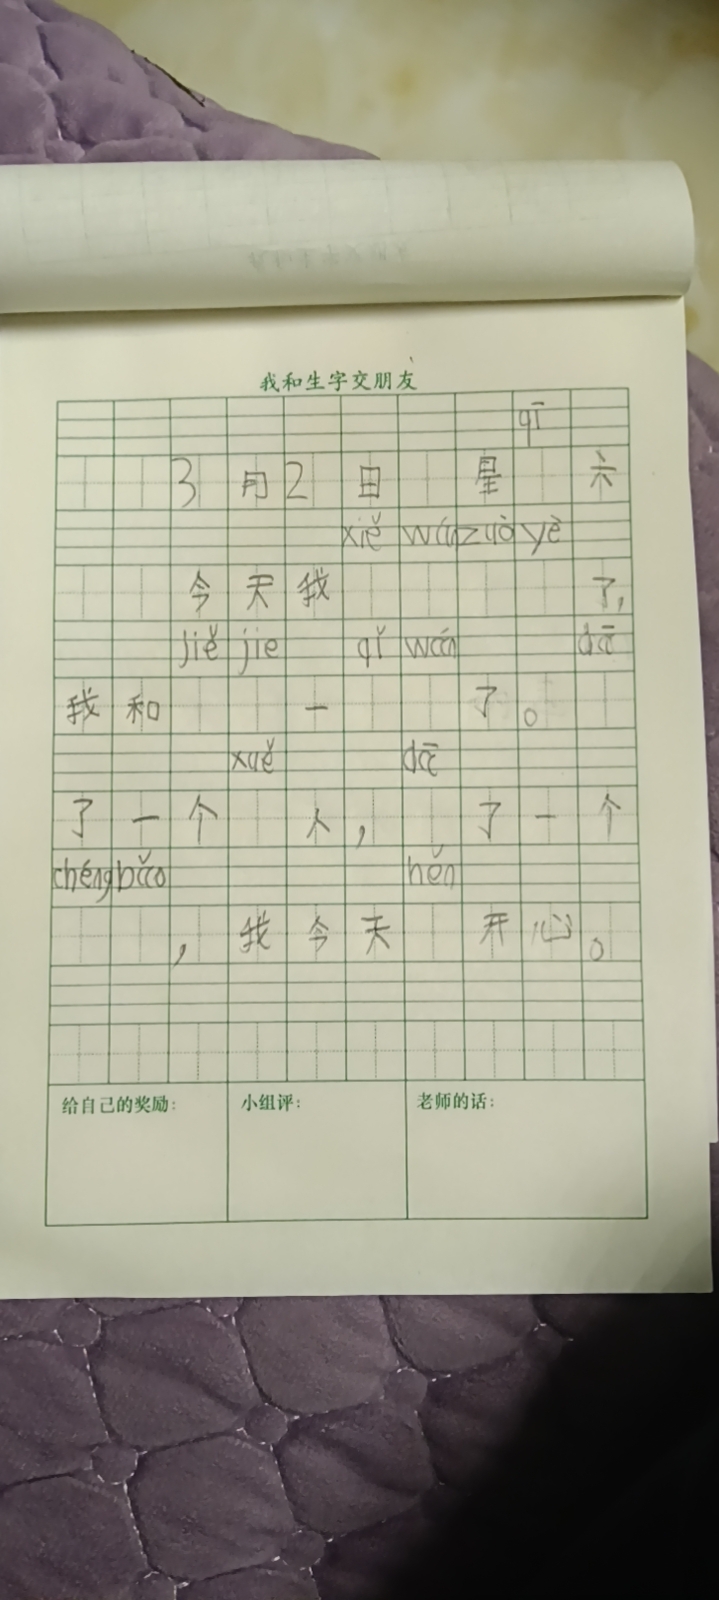 我和生字交朋友
qī
3月2日 星 六
xiě wán zuò yè
今天我 了,
jiě jie qǐ wán dā
我和 一 了。
xuě dā
了一个 人, 了一个
chéng bǎo hěn
, 我今天 开心。
给自己的奖励: 小组评: 老师的话: